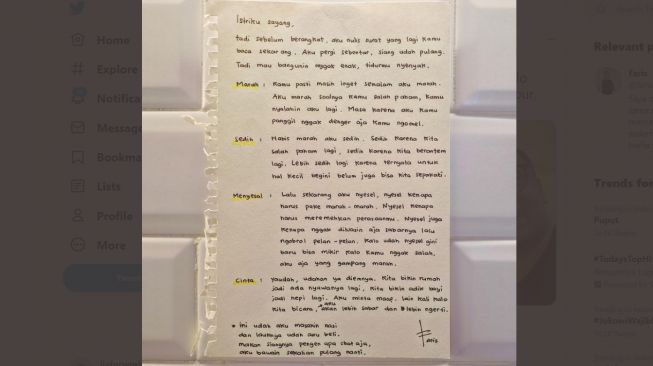 Istriku sayang,
tadi sebelum berangkat, aku nulis surat yang lagi kamu
baca sekarang. Aku pergi sebentar, siang udah pulang.
Tadi mau bangunin nggak enak, tidurmu nyenyak.
Marah : Kamu pasti masih inget semalam aku marah.
Aku marah soalnya kamu salah paham, kamu
nyalahin aku lagi. Masa karena aku kamu
panggil nggak denger aja kamu ngomel.
Sedih : Habis marah aku sedih. Sedih karena kita
salah paham lagi, sedih karena kita berantem
lagi. Lebih sedih lagi karena ternyata untuk
hal kecil begini belum juga bisa kita sepakati.
Menyesal : Lalu sekarang aku nyesel, nyesel kenapa
harus pake marah-marah. Nyesel kenapa
harus meremehkan perasaanmu. Nyesel juga
kenapa nggak dibiarin aja sabarnya lalu
ngobrol pelan-pelan. Kalo udah nyesel gini
baru bisa mikir kalo kamu nggak salah,
aku aja yang gampang marah.
Cinta : Yaudah, udahan ya diemnya. Kita bikin rumah
jadi ada nyawanya lagi, kita bikin adik bayi
jadi hepi lagi. Aku minta maaf. lain kali kalo
kita bicara, aku akan lebih sabar dan lebih ngerti.
* ini udah aku masakin nasi
dan lauknya udah aku beli.
makan siangnya pengen apa chat aja,
aku bawain sekalian pulang nanti.
Faris
Home
# Explore
Notifica
Messag
Bookma
Lists
Profile
More
Relevant p
Faris
Trends for
Puput.
#TodaysTopHi
#JokowiWajib